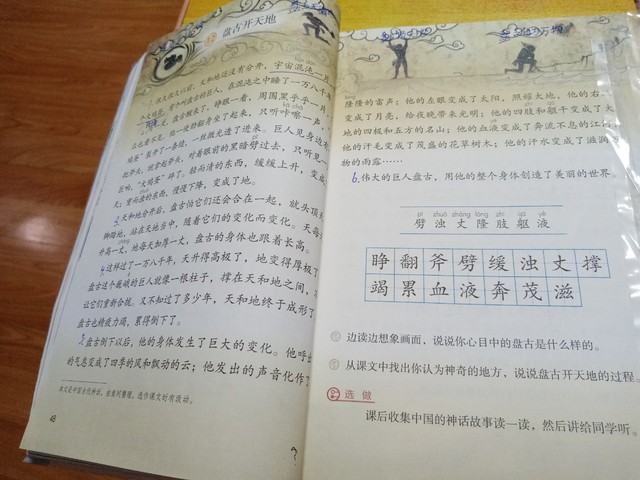 盘古开天地
很久很久以前,天和地还没有分开,宇宙混沌一片
个叫盘古的巨人,在混沌之中睡了一万八千年
有一天,盘古醒来了,睁眼一看,周围黑乎乎一片
么也看不见。他一使劲翻身坐了起来,只听咔嚓一声,
鸡蛋”裂开了一条缝,一丝微光透了进来。巨人见身边有
斧头,就拿起斧头,对着眼前的黑暗劈过去,只听见一
巨响,“大鸡蛋”碎了。轻而清的东西,缓缓上升,变成
天;重而浊的东西,慢慢下降,变成了地。
天和地分开后,盘古怕它们还会合在一起,就头顶
脚踏地,站在天地当中,随着它们的变化而变化。天每
升高一丈,地每天加厚一丈,盘古的身体也跟着长高。
4 这样过了一万八千年,天升得高极了,地变得厚极了
盘古这个巍峨的巨人就像一根柱子,撑在天和地之间,
让它们重新合拢。又不知过了多少年,天和地终于成形了
盘古也精疲力竭,累得倒下了。
盘古倒下以后,他的身体发生了巨大的变化。他呼出
的气息变成了四季的风和飘动的云;他发出的声音化作了
本文是中国古代神话,由袁珂整理,选作课文时有改动。
48
?
隆隆的雷声;他的左眼变成了太阳,照耀大地,他的右
变成了月亮,给夜晚带来光明;他的四肢和躯干变成了大
地的四极和五方的名山;他的血液变成了奔流不息的江
他的汗毛变成了茂盛的花草树木;他的汗水变成了滋润
物的雨露……
6 伟大的巨人盘古,用他的整个身体创造了美丽的世界。
pī zhuó zhàng lóng zhī qū yè
劈 浊 丈 隆 肢 躯 液
睁 翻 斧 劈 缓 浊 丈 撑
竭 累 血 液 奔 茂 滋
边读边想象画面,说说你心目中的盘古是什么样的。
从课文中找出你认为神奇的地方,说说盘古开天地的过程。
选做
课后收集中国的神话故事读一读,然后讲给同学听。